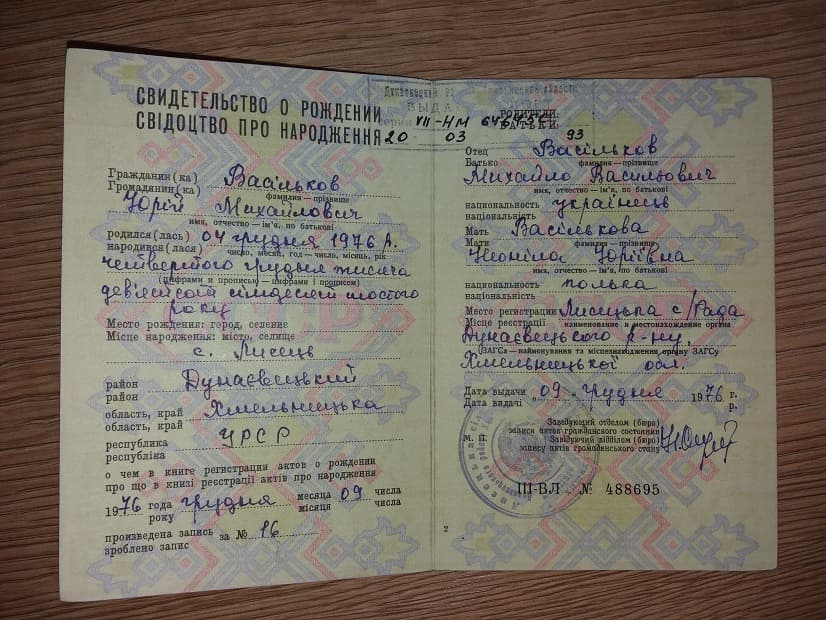 СВИДЕТЕЛЬСТВО О РОЖДЕНИИ
СВІДОЦТВО ПРО НАРОДЖЕННЯ
Гражданин(ка)
Громадянин(ка) Васільков
фамилия — прізвище
Юрій Михайлович
имя, отчество — ім'я, по батькові
родился(лась) 04 грудня 1976 р.
народився(лася) число, месяц, год — число, місяць, рік
четвертого грудня тисяча
(цифрами и прописью — цифрами і прописом)
дев'ятсот сімдесят шостого
року
Место рождения: город, селение
Місце народження: місто, селище
с. Лисець
район
район Дунаєвецький
область, край
область, край Хмельницька
республика
республіка УРСР
о чем в книге регистрации актов о рождении
про що в книзі реєстрації актів про народження
1976 года грудня месяца 09 числа
року місяця числа
произведена запись
зроблено запис за № 16
ВЫДА
VII-НМ
20 03 93
РОДИТЕЛИ:
БАТЬКИ:
Отец
Батько Васільков
фамилия — прізвище
Михайло Васильович
имя, отчество — ім'я, по батькові
национальность
національність українець
Мать
Мати Васількова
фамилия — прізвище
Неоніла Юріївна
имя, отчество — ім'я, по батькові
национальность
національність полька
Место регистрации Лисецька с/Рада
Місце реєстрації наименование и местонахождение органа
Дунаєвецького р-ну,
ЗАГСа — найменування та місцезнаходження органу ЗАГСу
Хмельницької обл.
Дата выдачи
Дата видачі 09 грудня 1976 г.
р.
Заведующий отделом (бюро)
записи актов гражданского состояния
М. П. Завідуючий відділом (бюро)
запису актів громадянського стану
III-ВЛ № 488695
2